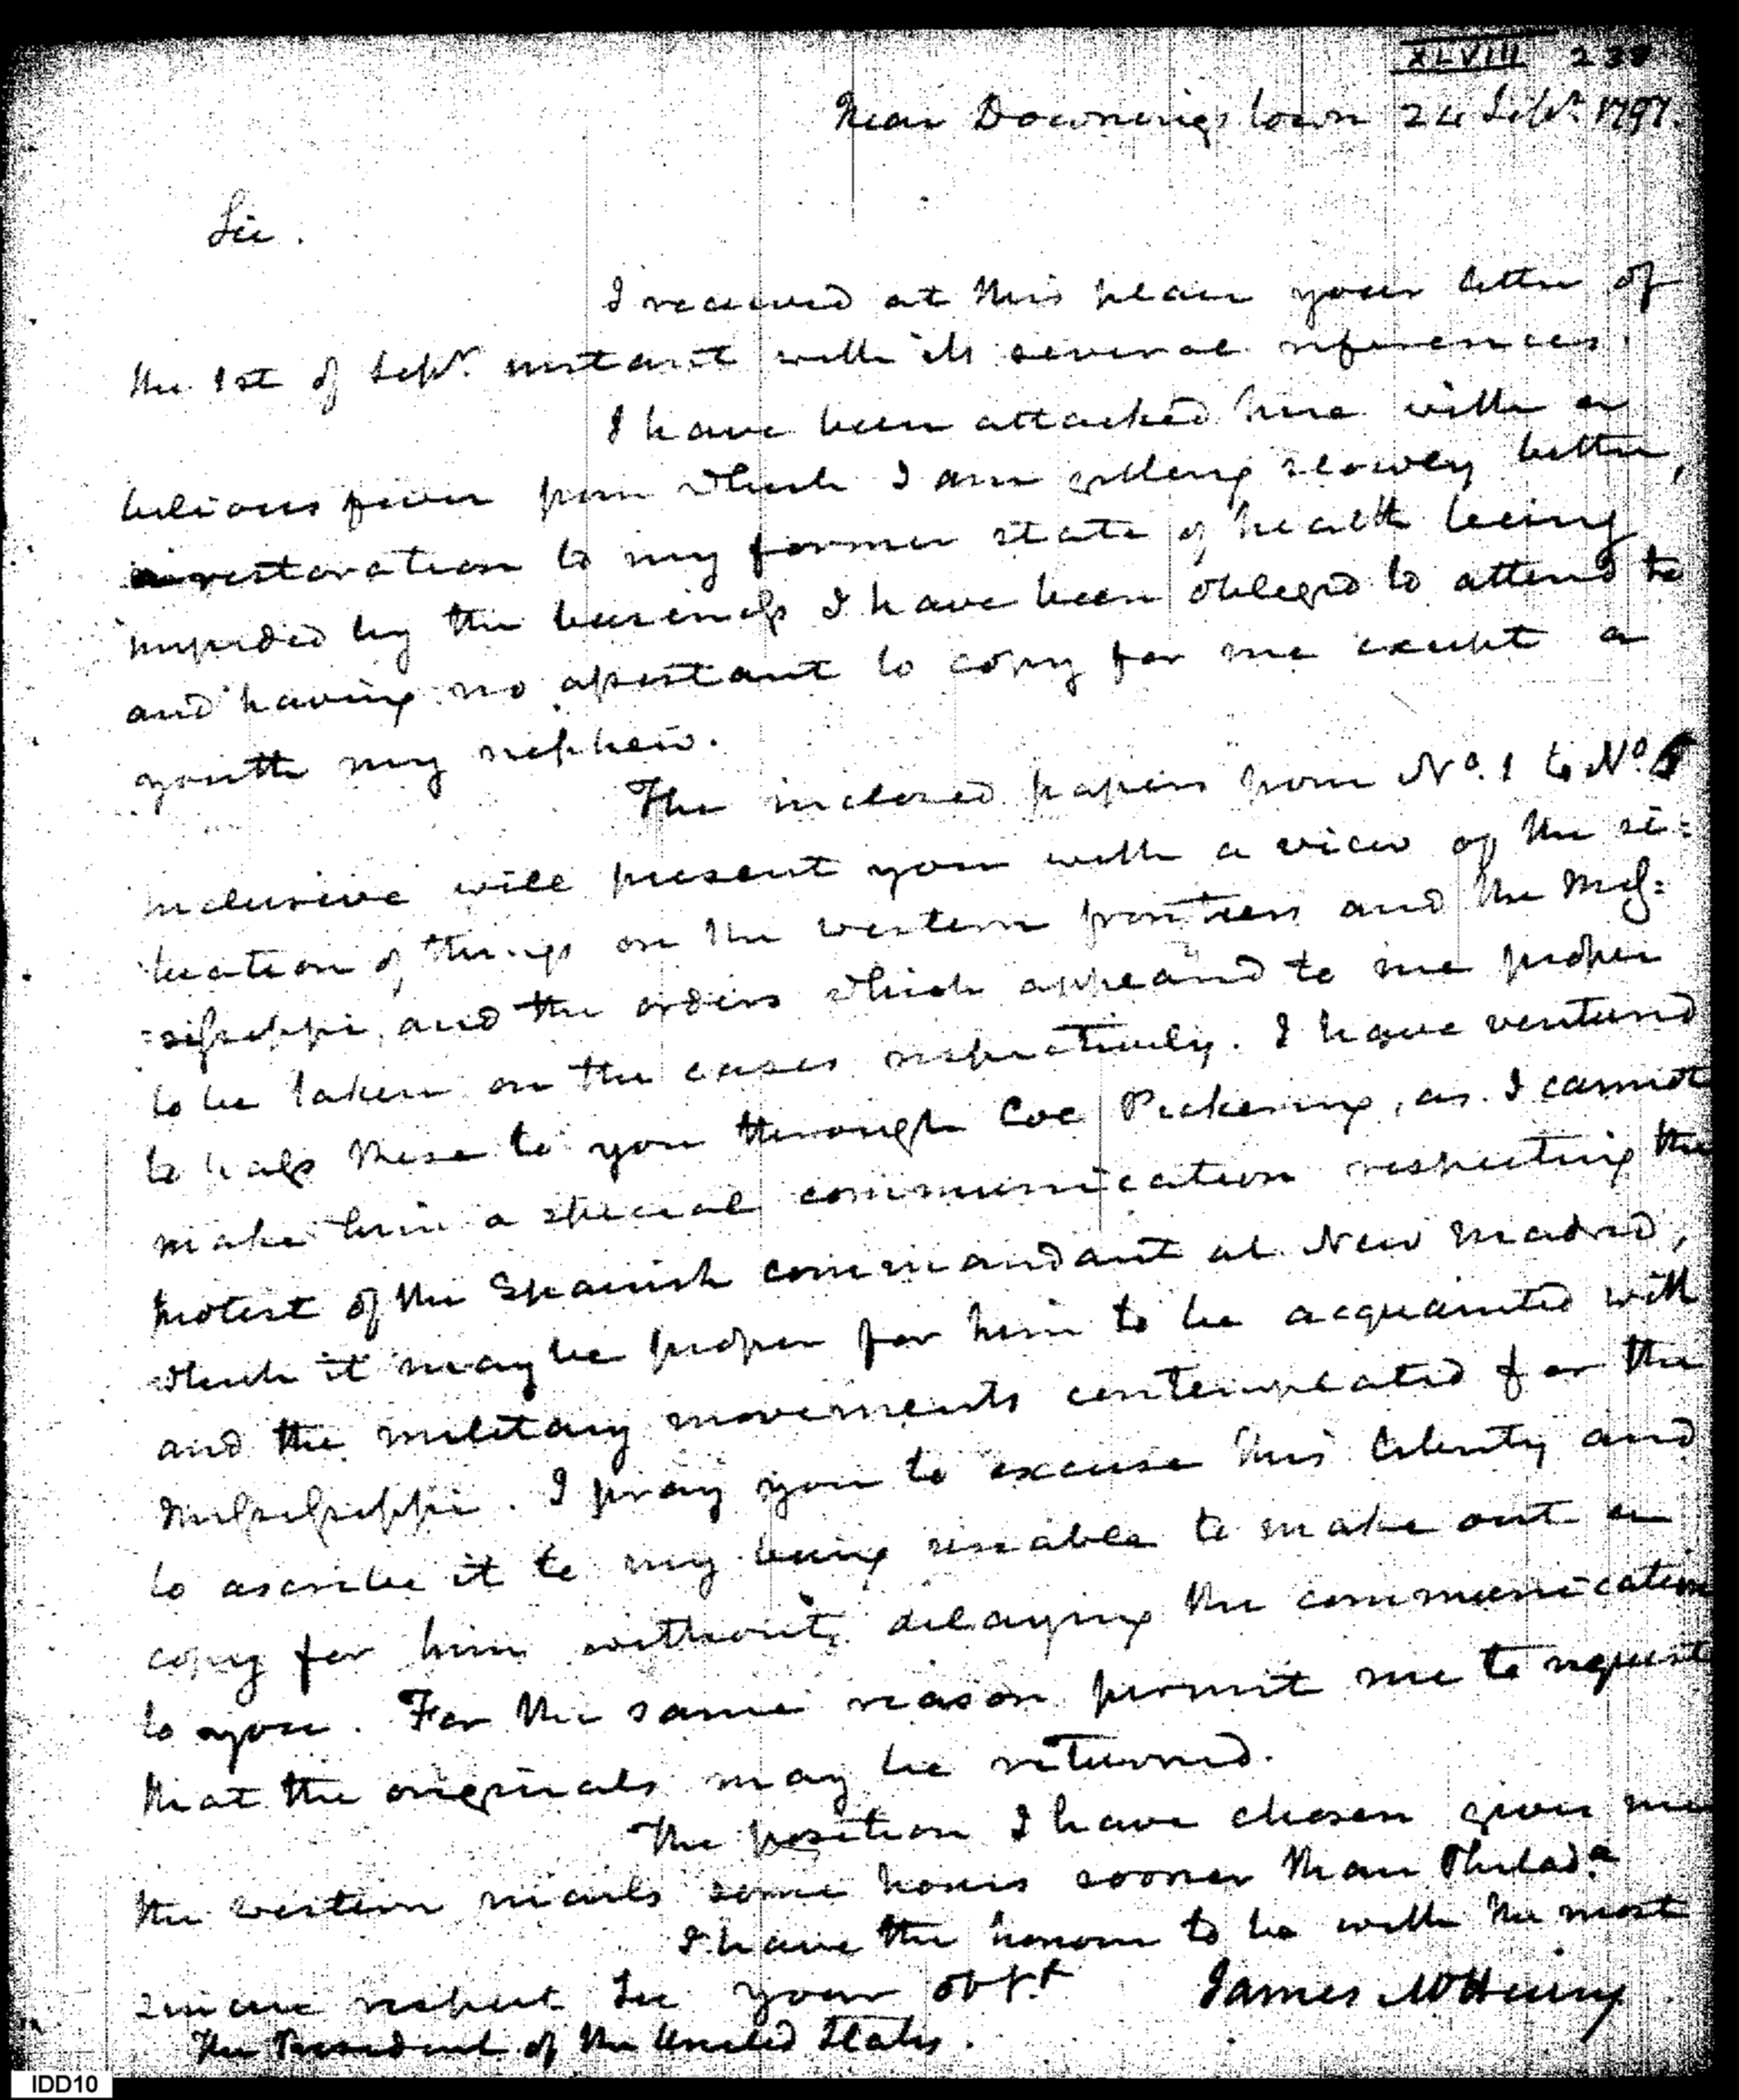 XLVIII 238
Near Downingstown 24 Sepr. 1797.
Sir.
I received at this place your letter of
the 1st of Sepr. instant with its several references.
I have been attacked here with a
bilious fever from which I am getting slowly better,
restoration to my former state of health being
impeded by the business I have been obliged to attend to
and having no assistant to copy for me except a
youth my nephew.
The inclosed papers from No. 1 to No.
inclusive will present you with a view of the si=
tuation of things on the western frontiers and the Mis=
=sissippi, and the orders which appeared to me proper
to be taken on the cases respectively. I have ventured
to pass these to you through Col Pickering, as I cannot
make him a special communication respecting the
protest of the Spanish commandant at New Madrid,
which it may be proper for him to be acquainted with
and the military movements contemplated for the
Mississippi. I pray you to excuse this liberty and
to ascribe it to my being unable to make out a
copy for him without delaying the communication
to you. For the same reason permit me to request
that the originals may be returned.
The position I have chosen gives me
the western mails some hours sooner than Philada.
I have the honour to be with the most
sincere respect Sir your obt. James McHenry
The President of the United States.
IDD10